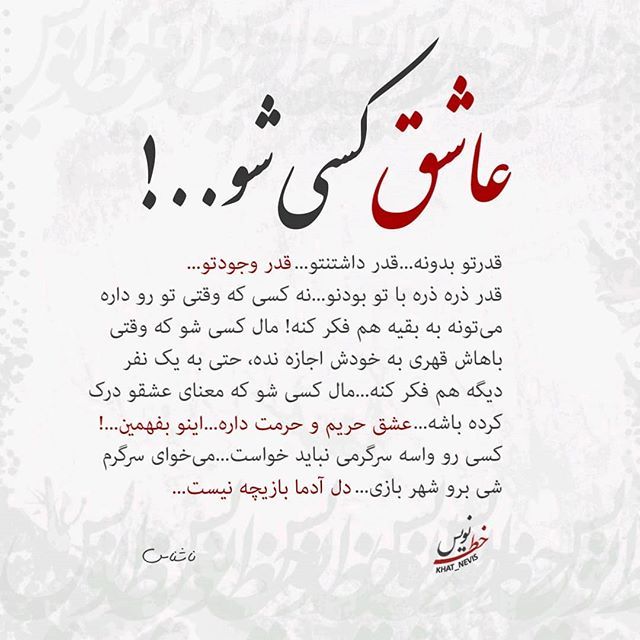 عاشق کسی شو...!
قدرتو بدونه...قدر داشتنتو...قدر وجودتو...
قدر ذره ذره با تو بودنو...نه کسی که وقتی تو رو داره
می‌تونه به بقیه هم فکر کنه! مال کسی شو که وقتی
باهاش قهری به خودش اجازه نده، حتی به یک نفر
دیگه هم فکر کنه...مال کسی شو که معنای عشقو درک
کرده باشه...عشق حریم و حرمت داره...اینو بفهمین...!
کسی رو واسه سرگرمی نباید خواست...می‌خوای سرگرم
شی برو شهر بازی...دل آدما بازیچه نیست...
خط نویس
KHAT_NEVIS
ناشناس